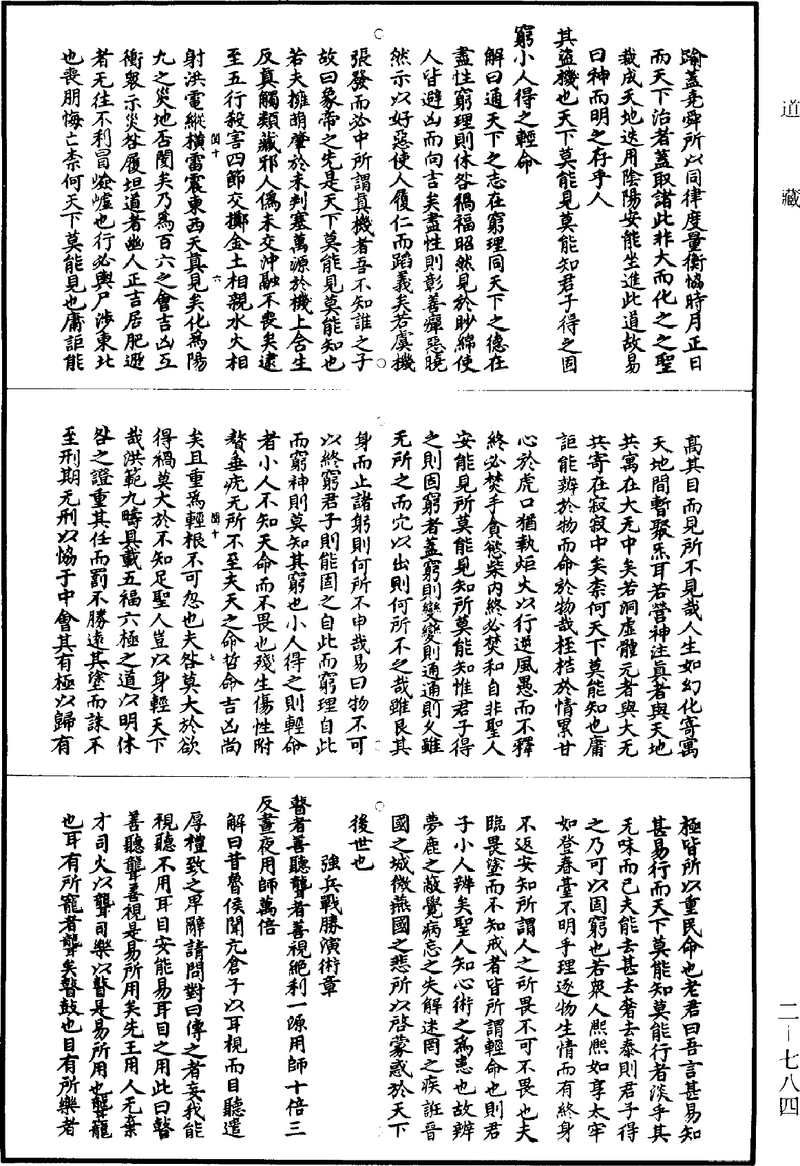 道藏
踰蓋堯舜所以同律度量衡協時月正日
而天下治者蓋取諸此非大而化之之聖
裁成天地迭用陰陽安能坐進此道故易
曰神而明之存乎人
其盜機也天下莫能見莫能知君子得之固
窮小人得之輕命
解曰通天下之志在窮理同天下之德在
盡性窮理則休咎禍福昭然見於眇綿使
人皆避凶而向吉矣盡性則彰善癉惡曉
然示以好惡使人履仁而蹈義矣若虞機
張發而必中所謂真機者吾不知誰之子
故曰象帝之先是天下莫能見莫能知也
若夫擁萌肇於未判塞萬源於機上含生
反真觸類藏邪人偽未交沖融不喪矣逮
至五行殺害四節交擲金土相親水火相
閏十
六
射洪電縱橫雷震東西天真見矣化為陽
九之災地否閡矣乃為百六之會吉凶互
衡衆示災咎履坦道者幽人正吉居肥遯
者无往不利冒嶮巇也行必輿尸涉東北
也喪朋悔亡柰何天下莫能見也庸詎能
高其目而見所不見哉人生如幻化寄寓
天地間暫聚炁耳若營神注真者與天地
共寓在大无中矣若洞虛體元者與大无
共寄在寂寂中矣柰何天下莫能知也庸
詎能辨於物而命於物哉桎梏於情累甘
心於虎口猶執炬火以行逆風愚而不釋
終必焚手貪慾柴內終必焚和自非聖人
安能見所莫能見知所莫能知惟君子得
之則固窮者蓋窮則變變則通通則久雖
无所之而穴以出則何所不之哉雖艮其
身而止諸躬則何所不申哉易曰物不可
以終窮君子則能固之自此而窮理自此
而窮神則莫知其窮也小人得之則輕命
者小人不知天命而不畏也殘生傷性附
贅垂疣无所不至夫天之命哲命吉凶尚
閏十
七
矣且重為輕根不可忽也夫咎莫大於欲
得禍莫大於不知足聖人豈以身輕天下
哉洪範九疇具載五福六極之道以明休
咎之證重其任而罰不勝遠其塗而誅不
至刑期无刑以協于中會其有極以歸有
極皆所以重民命也老君曰吾言甚易知
甚易行而天下莫能知莫能行者淡乎其
无味而已夫能去甚去奢去泰則君子得
之乃可以固窮也若衆人熙熙如享太牢
如登春臺不明乎理逐物生情而有終身
不返安知所謂人之所畏不可不畏也夫
臨畏塗而不知戒者皆所謂輕命也則君
子小人辨矣聖人知心術之為患也故辨
夢鹿之敝覺病忘之失解迷罔之疾誑晉
國之城微燕國之悲所以啓蒙惑於天下
後世也
強兵戰勝演術章
瞽者善聽聾者善視絕利一源用師十倍三
反晝夜用師萬倍
解曰昔魯侯聞亢倉子以耳視而目聽遣
厚禮致之卑辭請問對曰傳之者妄我能
視聽不用耳目安能易耳目之用此曰瞽
善聽聾善視是易所用矣先王用人无棄
才司火以聾司樂以瞽是易所用也聾寵
也耳有所寵者聾矣瞽鼓也目有所樂者
二－七八四